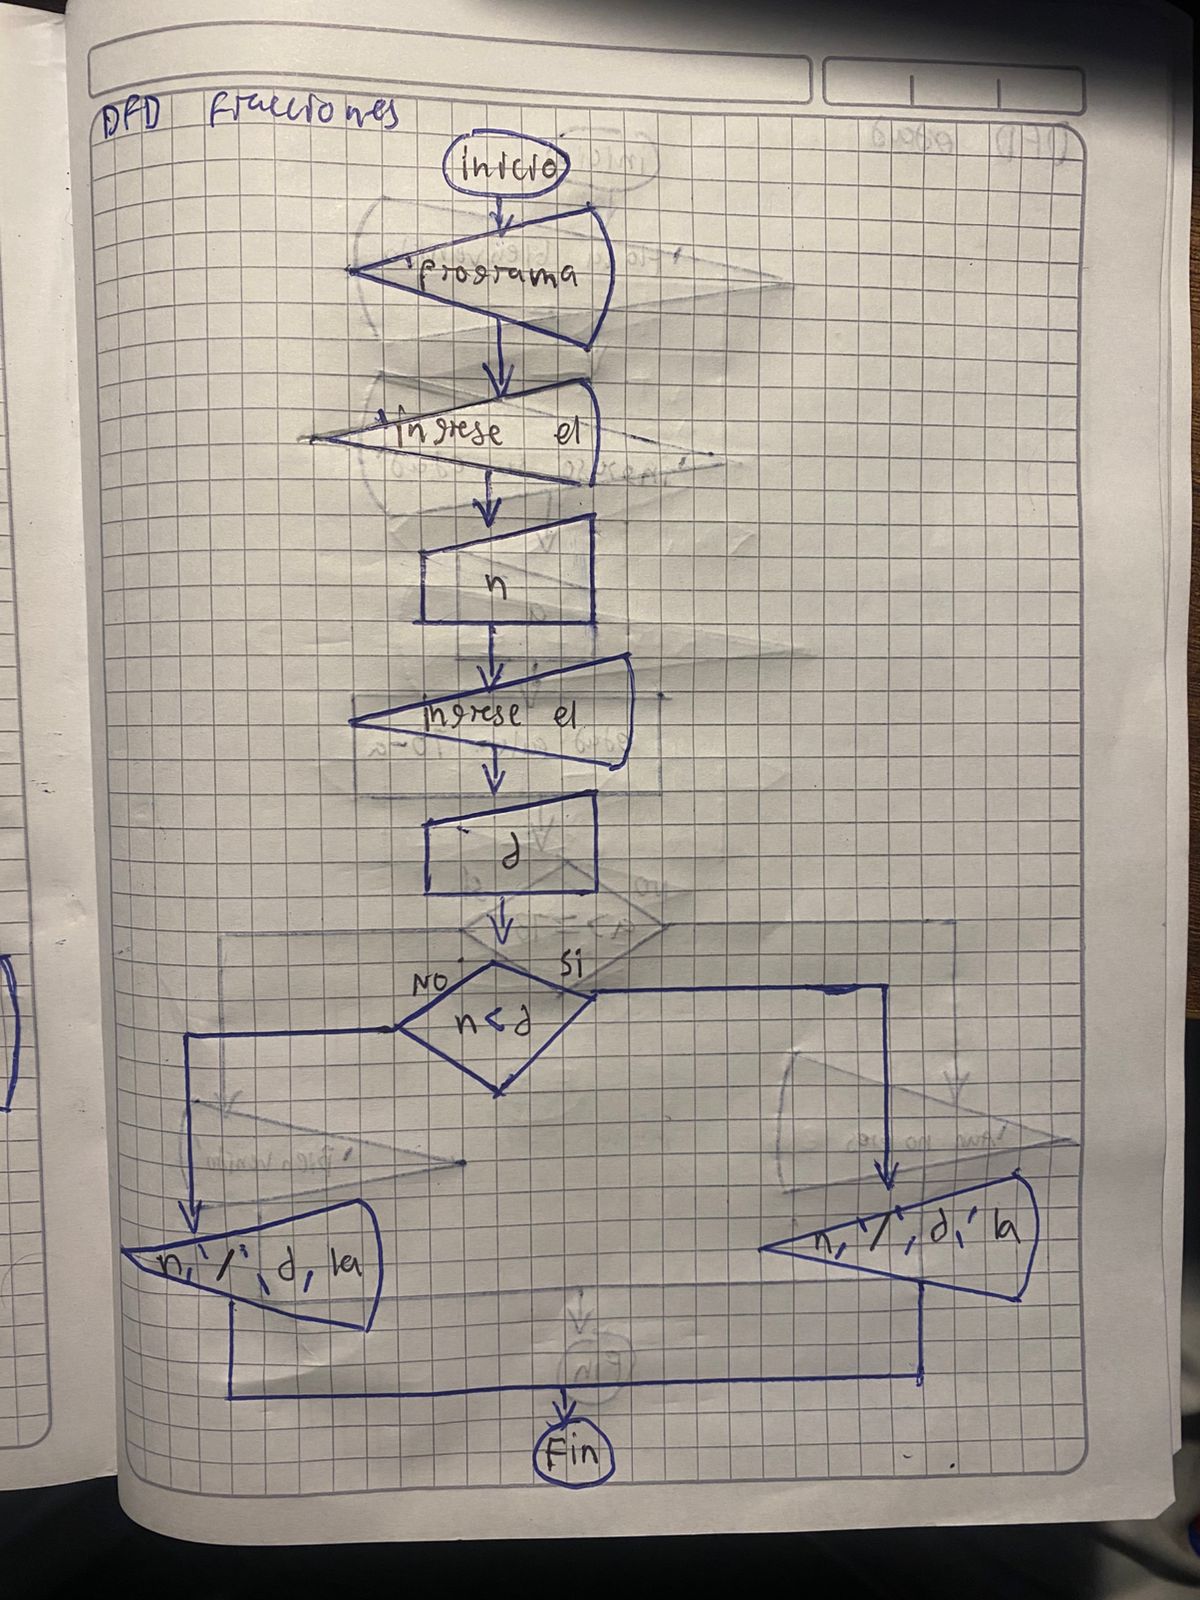 DFD fracciones
inicio
'programa
'ingrese el
n
ingrese el
d
NO
Si
n < d
n, '/', d, la
n, '/', d, ' la
Fin